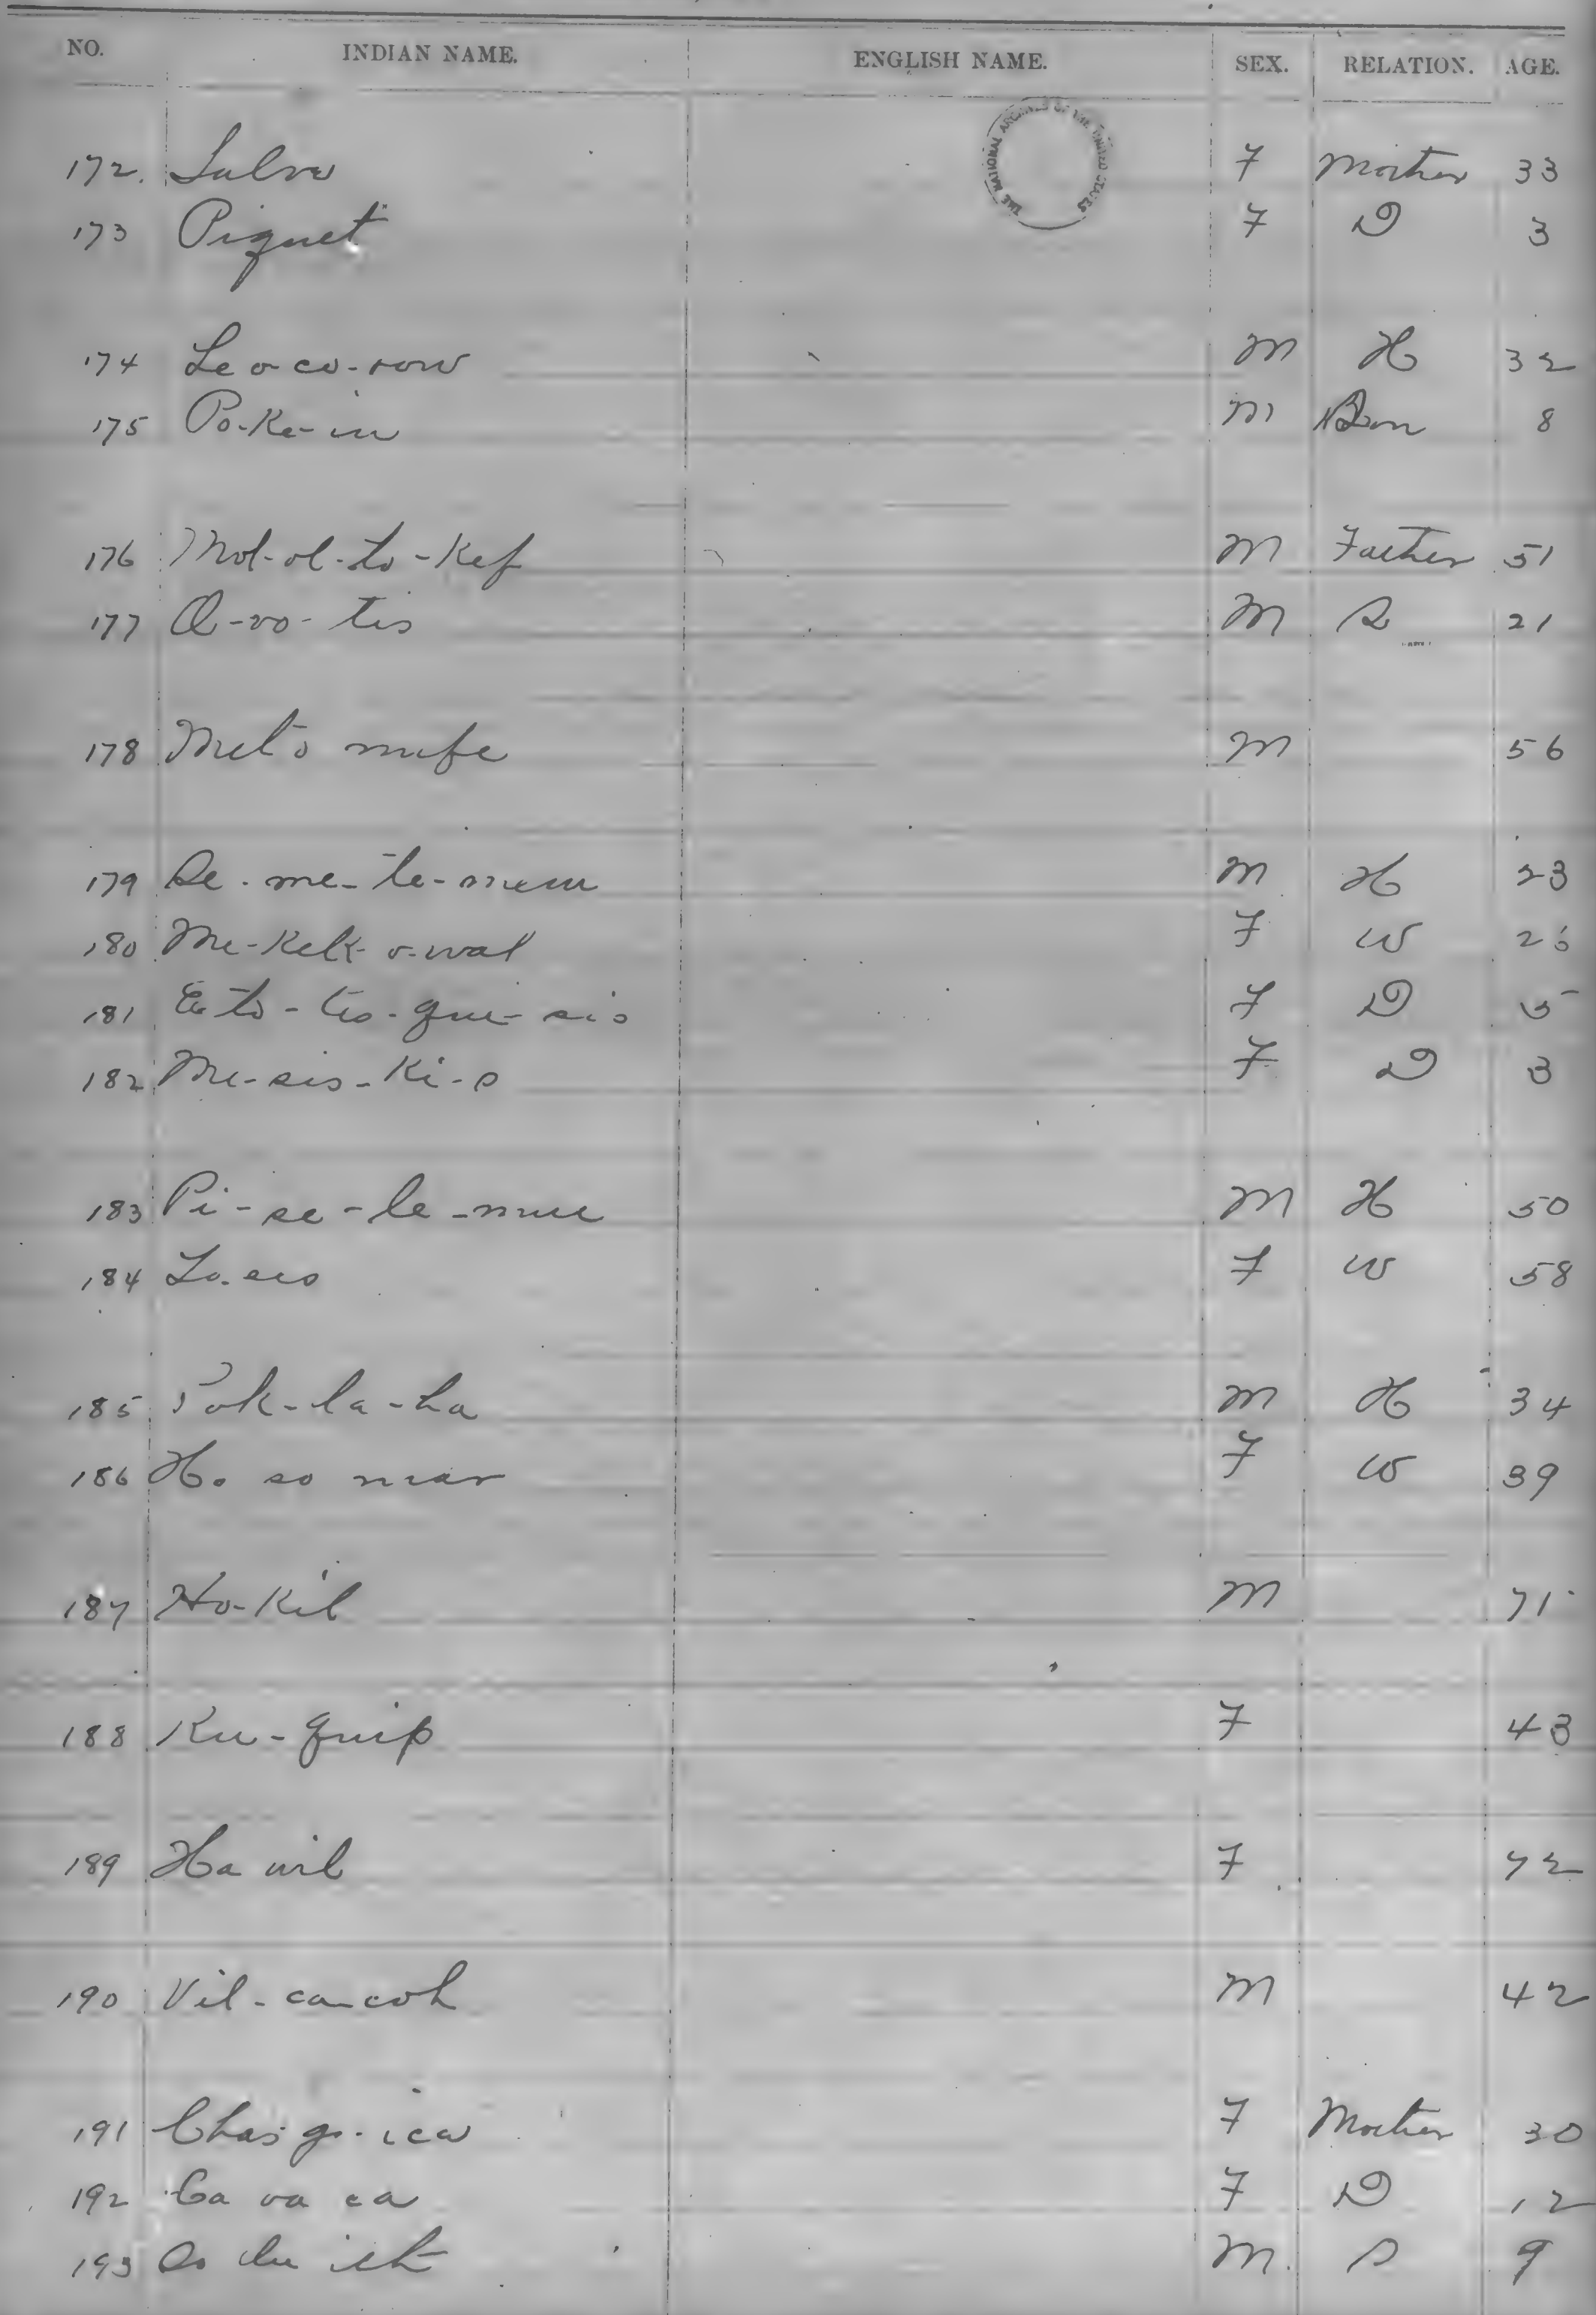 NO. INDIAN NAME. ENGLISH NAME. SEX. RELATION. AGE.
THE NATIONAL ARCHIVES OF THE UNITED STATES
172. F Mother 33
173 Piquet F D 3
174 Le o-co-row M H 32
175 Po-Ke-in M 8
176 Mol-ol-to-Kef M Father 51
177 O-vo-tis M S 21
178 Meto mufe M 56
179 Se-me-le-mem M H 23
180 Me-Kelk-o-wal F W
181 F D 5
182 Me-sis-Ki-s F D 3
183 Pi-se-le-mue M H 50
184 Lo-sis F W 58
185 Pok-la-ha M H 34
186 Ho so mar F W 39
187 Ho-Kil M 71
188 Ku-quip F 43
189 Ha wil F 72
190 Vil-ca-coh M 42
191 F Mother 30
192 Ca va ca F D 12
193 M. S 9